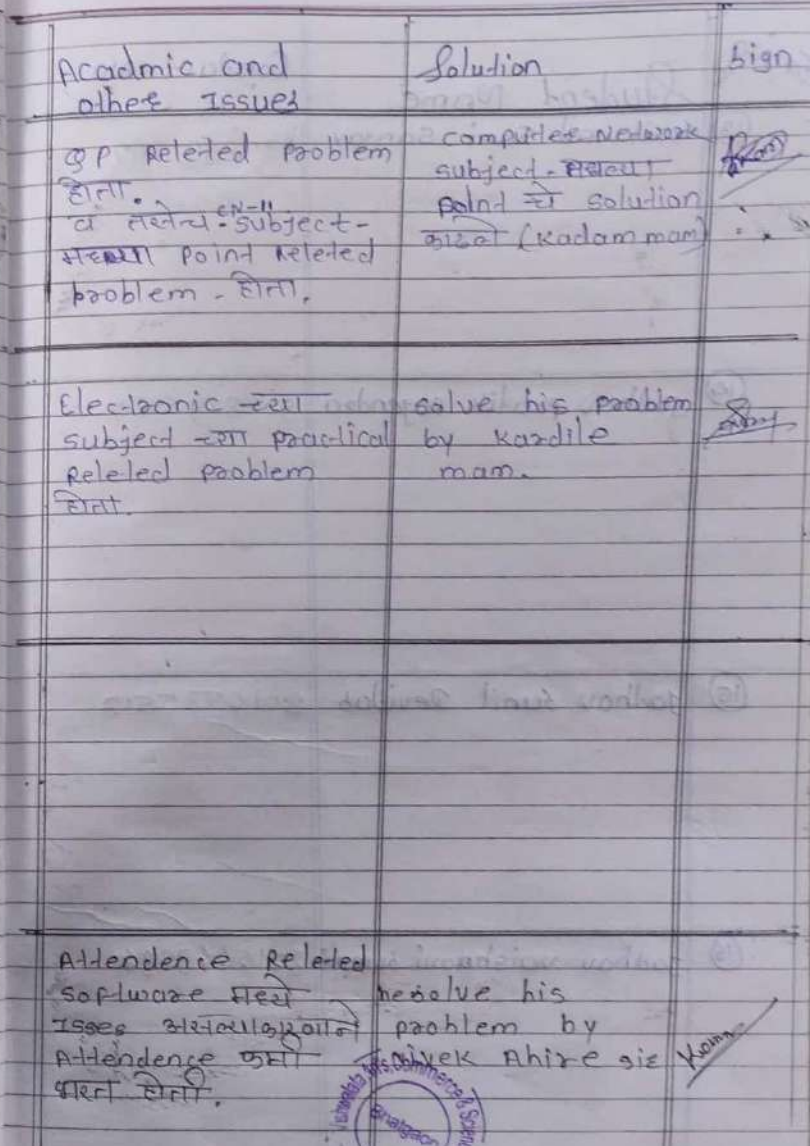 Acadmic and
other Issues
Solution
Sign
QP Releted problem
होता.
व तसेच CN-II subject-
मधल्या Point Releted
problem - होता.
Computer Network
subject - मधल्या
point चे solution
काढले (Kadam mam)
Electronic च्या
subject च्या practical
Releted problem
होता.
solve his problem
by Kardile
mam.
Attendence Releted
software मध्ये
Isses असल्याकारणाने
Attendence कमी
भरत होती.
Resolve his
problem by
Vivek Ahire sir
Arts, Commerce & Science
Bhatgaon